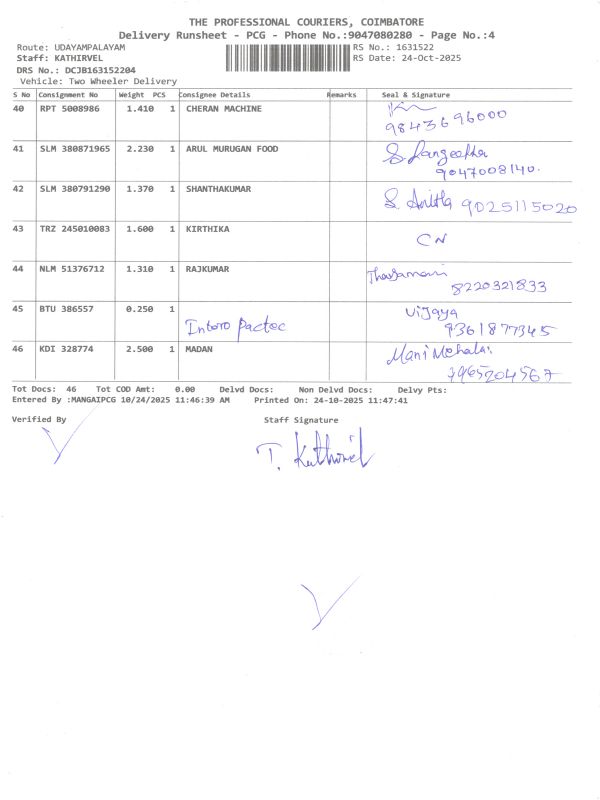 THE PROFESSIONAL COURIERS, COIMBATORE
Delivery Runsheet - PCG - Phone No.:9047080280 - Page No.:4
Route: UDAYAMPALAYAM
RS No.: 1631522
Staff: KATHIRVEL
RS Date: 24-Oct-2025
DRS No.: DCJB163152204
Vehicle: Two Wheeler Delivery
S No Consignment No Weight PCS Consignee Details Remarks Seal & Signature
40 RPT 5008986 1.410 1 CHERAN MACHINE
9843696000
41 SLM 380871965 2.230 1 ARUL MURUGAN FOOD S. Sangeetha
9047008140.
42 SLM 380791290 1.370 1 SHANTHAKUMAR S. Anitha 9025115020
43 TRZ 245010083 1.600 1 KIRTHIKA CN
44 NLM 51376712 1.310 1 RAJKUMAR
8220321833
45 BTU 386557 0.250 1 Vijaya
Intoro Pactec 9361877345
46 KDI 328774 2.500 1 MADAN Mani Mohalai
7965204567
Tot Docs: 46 Tot COD Amt: 0.00 Delvd Docs: Non Delvd Docs: Delvy Pts:
Entered By :MANGAIPCG 10/24/2025 11:46:39 AM Printed On: 24-10-2025 11:47:41
Verified By Staff Signature
T. Kathirvel